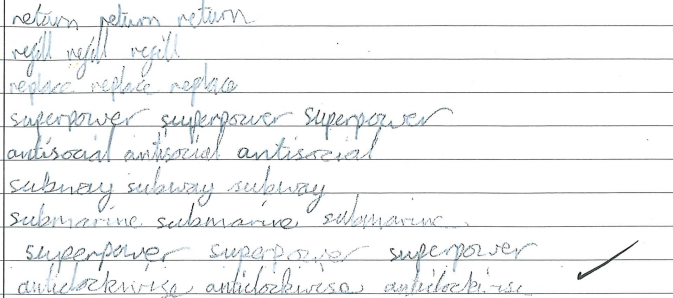 return return return
refill refill refill
replace replace replace
superpower superpower superpower
antisocial antisocial antisocial
subway subway subway
submarine submarine submarine
superpower superpower superpower
anticlockwise anticlockwise anticlockwise